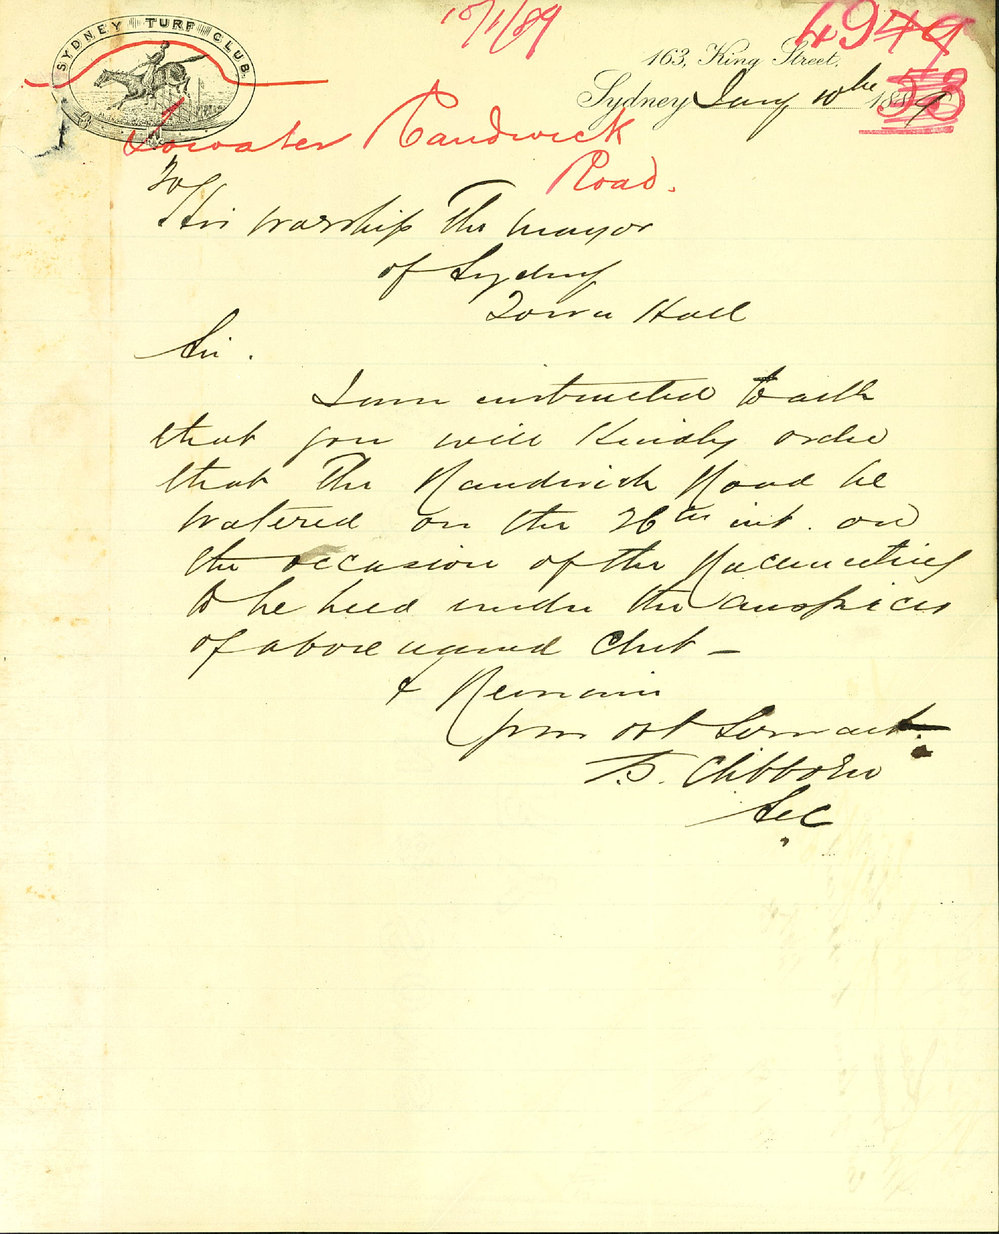 10/1/89
4949
58
SYDNEY TURF CLUB.
163, King Street,
Sydney Jany 10th 1889
To water Randwick
Road.
To
His Worship The Mayor
of Sydney
Town Hall
Sir.
I am instructed to ask
that you will Kindly order
that The Randwick Road be
watered on the 26th inst. on
the occasion of the Race meeting
to be held under the auspices
of above named Club –
I Remain
Your obt Servant
T. S. Clibborn
Sec